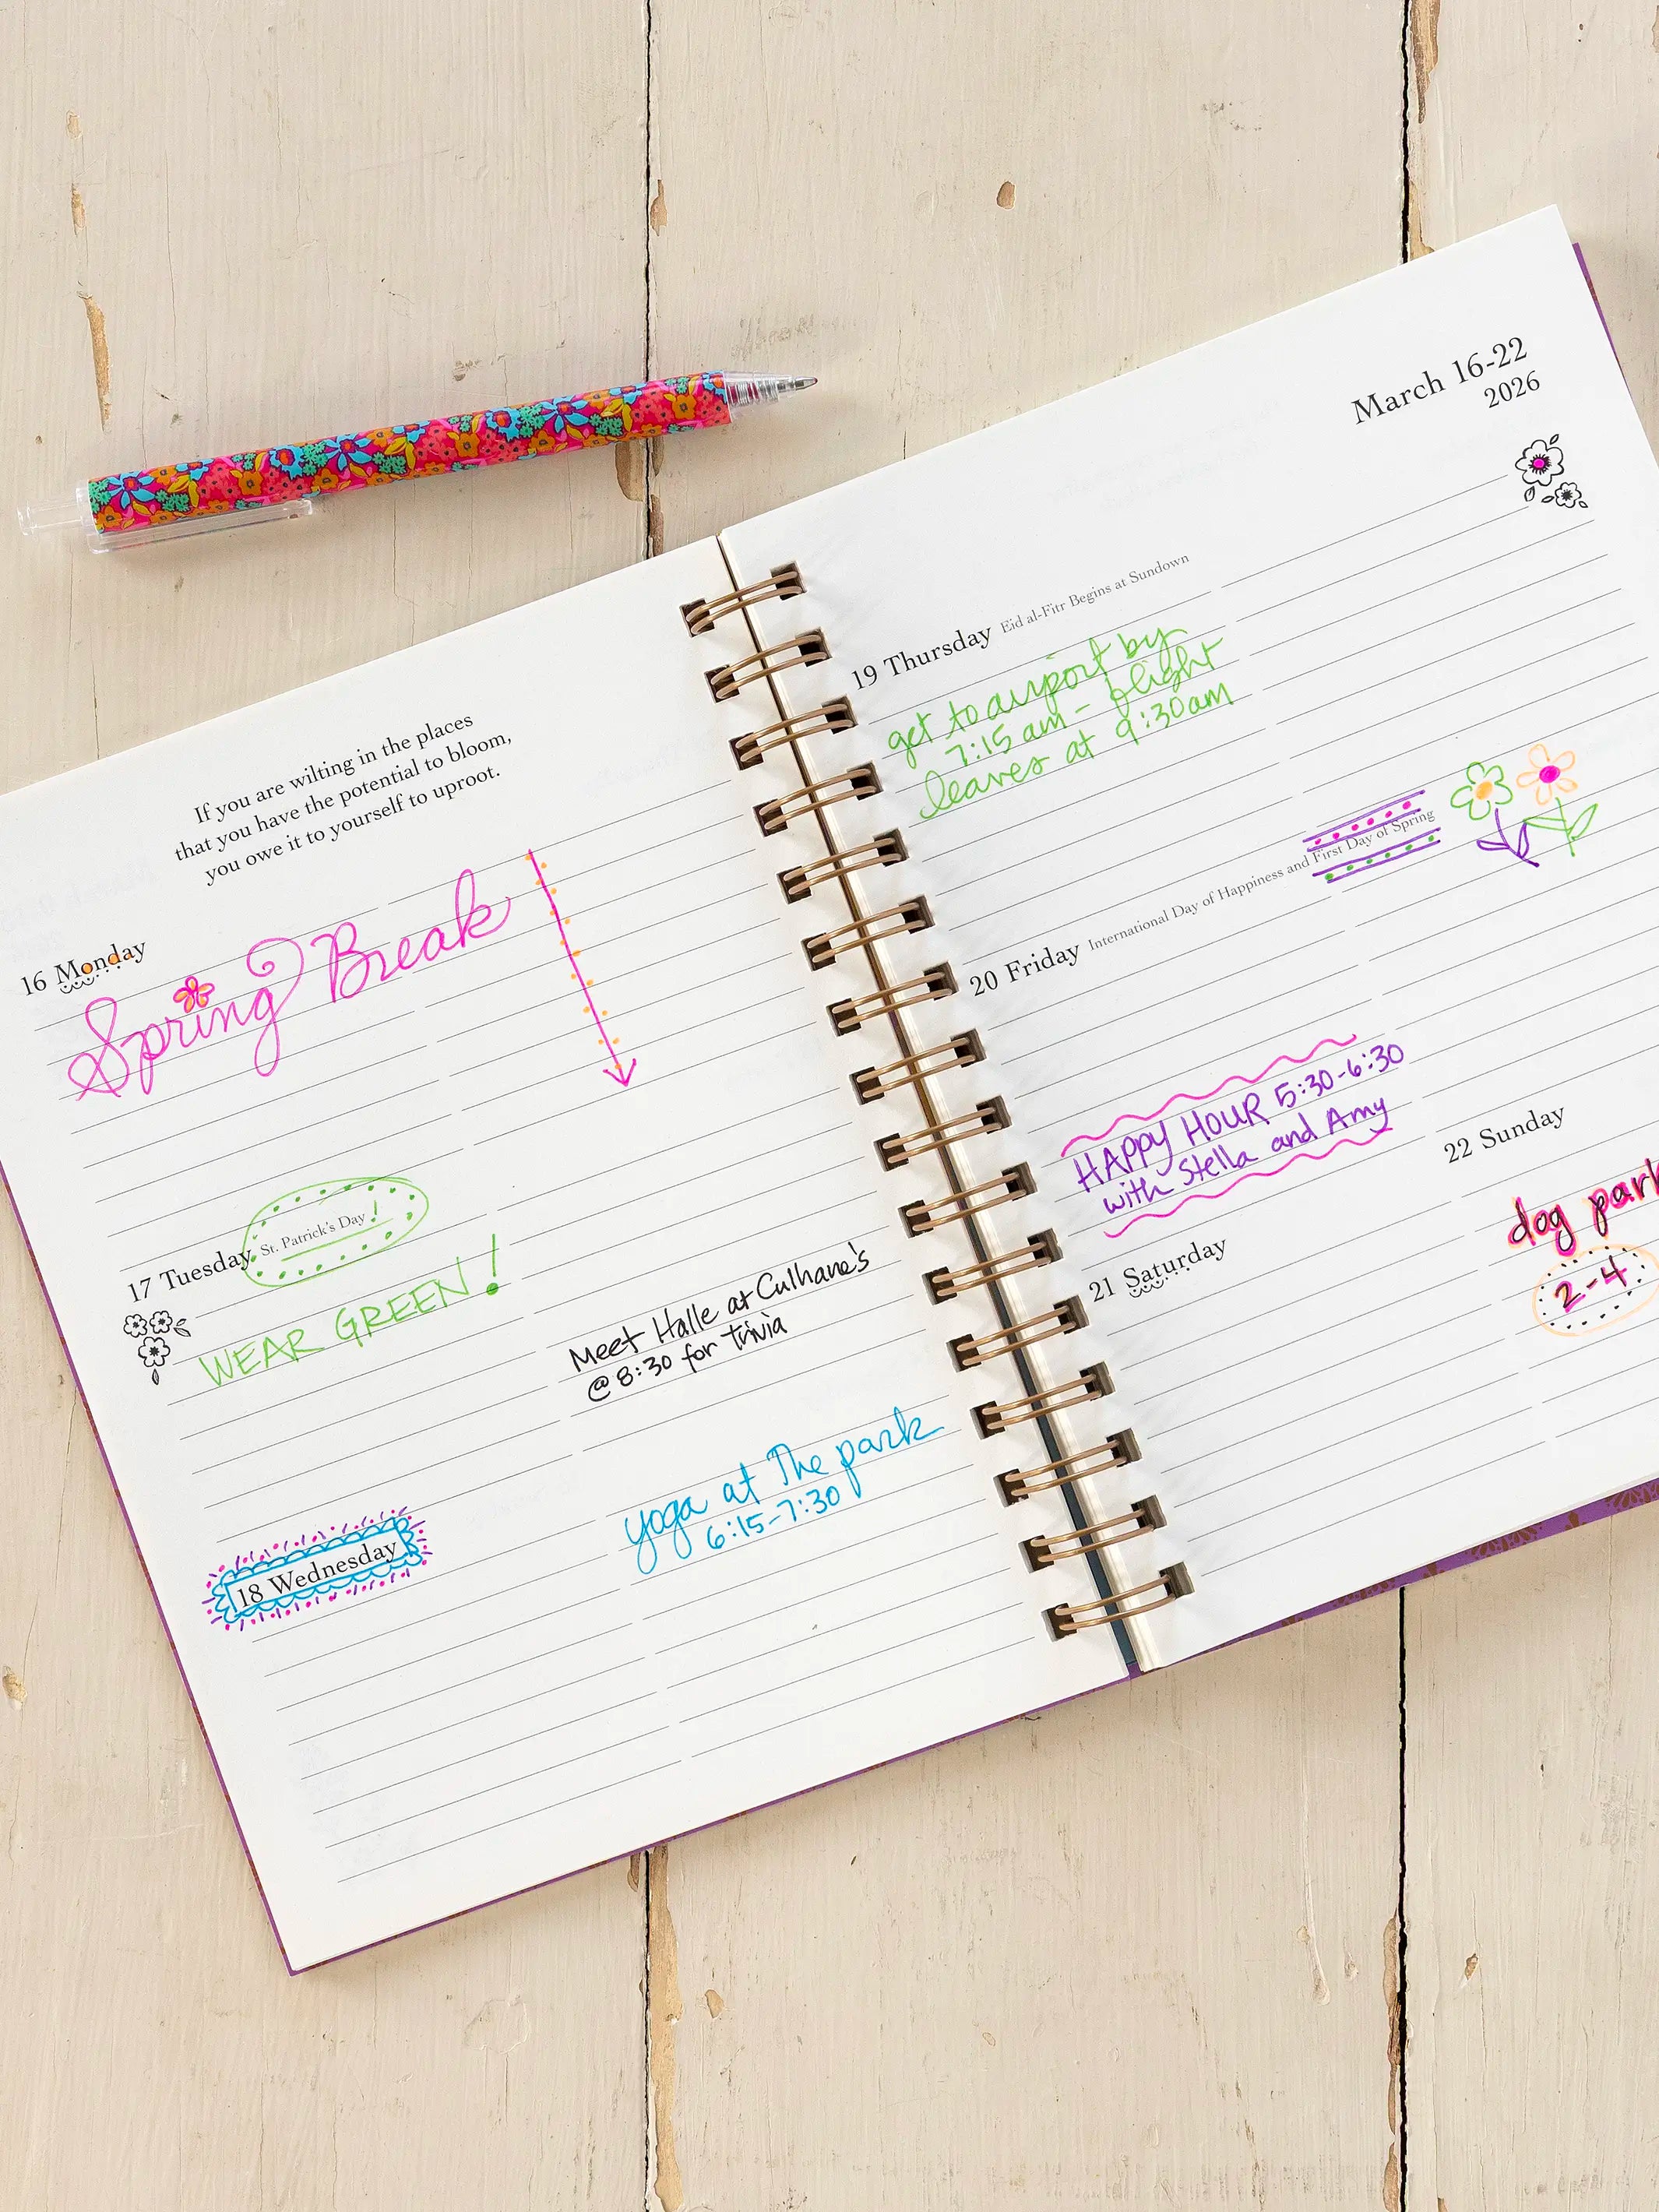 If you are wilting in the places
that you have the potential to bloom,
you owe it to yourself to uproot.
16 Monday
Spring Break
17 Tuesday St. Patrick's Day!
WEAR GREEN!
Meet Halle at Culhane's
@ 8:30 for trivia
18 Wednesday
yoga at The park
6:15-7:30
March 16-22
2026
19 Thursday Eid al-Fitr Begins at Sundown
get to airport by
7:15 am - flight
leaves at 9:30am
20 Friday International Day of Happiness and First Day of Spring
HAPPY HOUR 5:30-6:30
with Stella and Amy
21 Saturday
22 Sunday
dog park
2-4